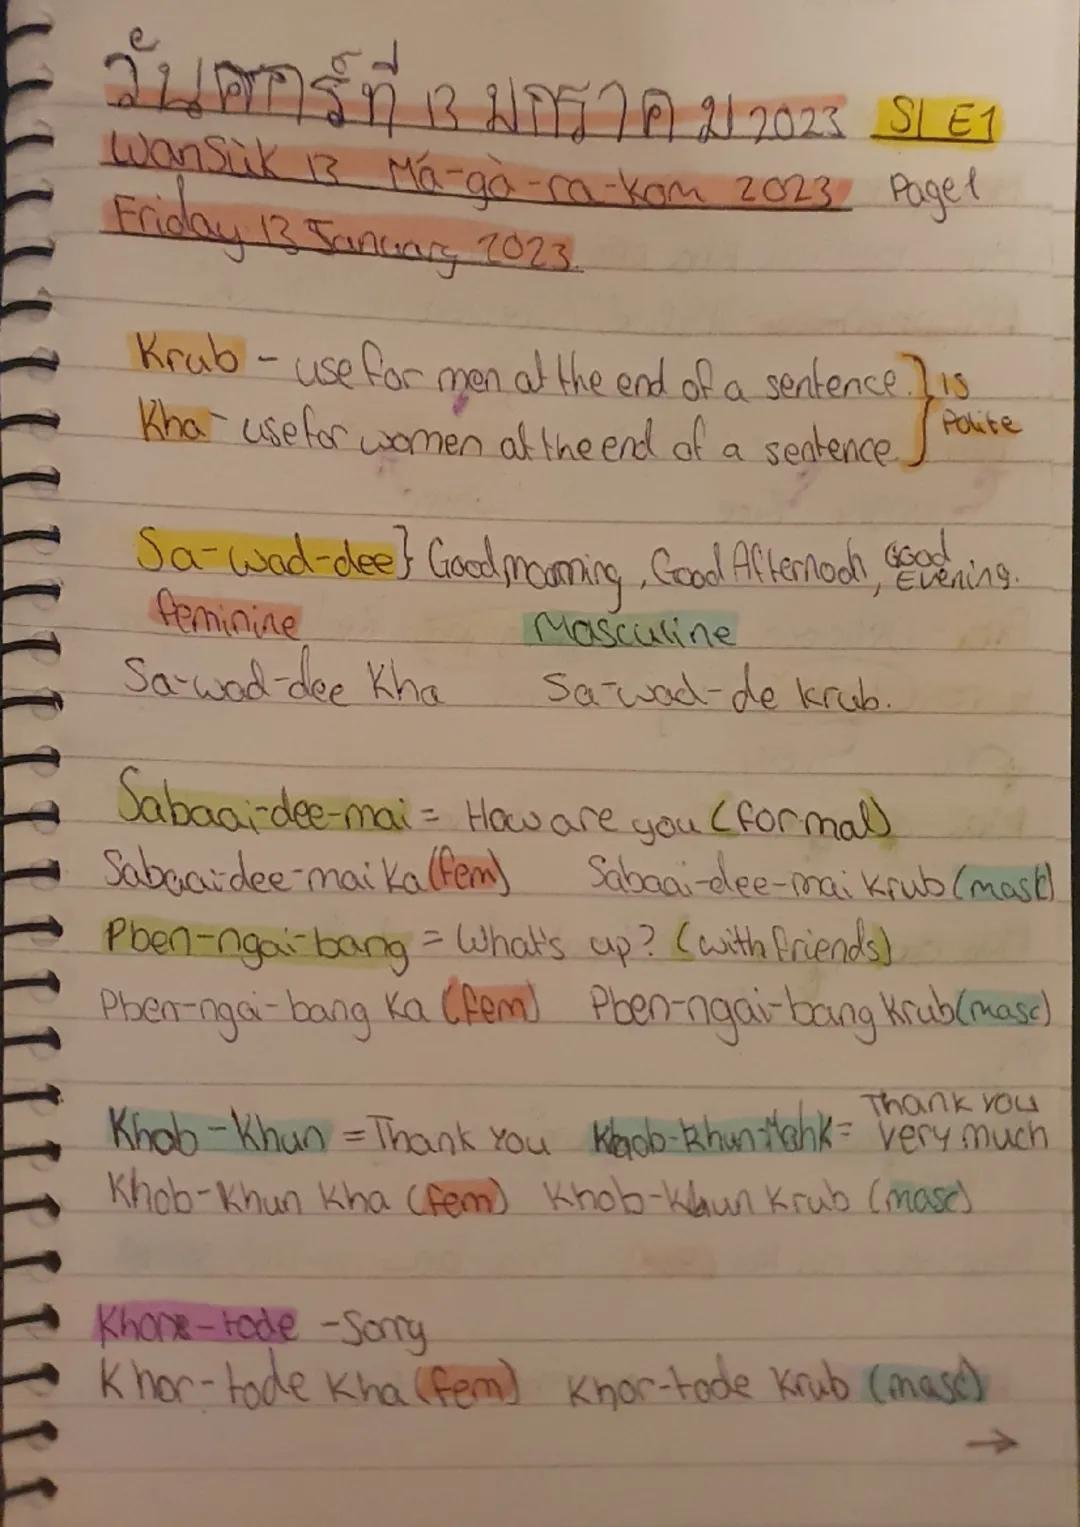 วันศุกร์ที่ 13 มกราคม 2023 S1 E1
Wan Sùk 13 Má-gà-ra-kom 2023 Page 1
Friday 13 January 2023.
Krub - use for men at the end of a sentence. } is
Kha - use for women at the end of a sentence. } Polite
Sa-wad-dee } Good morning, Good Afternoon, Good Evening.
feminine Masculine
Sa-wad-dee Kha Sa-wad-de krub.
Sabaai-dee-mai = How are you (formal)
Sabaai-dee-mai Ka (fem) Sabaai-dee-mai Krub (mask)
Pben-ngai-bang = What's up? (with friends)
Pben-ngai-bang Ka (fem) Pben-ngai-bang Krub (masc)
Khob-Khun = Thank You Khob-Khun-Mahk = Thank you very much
Khob-Khun Kha (fem) Khob-Khun Krub (masc)
Khor-tode - Sorry
Khor-tode Kha (fem) Khor-tode Krub (masc)
→